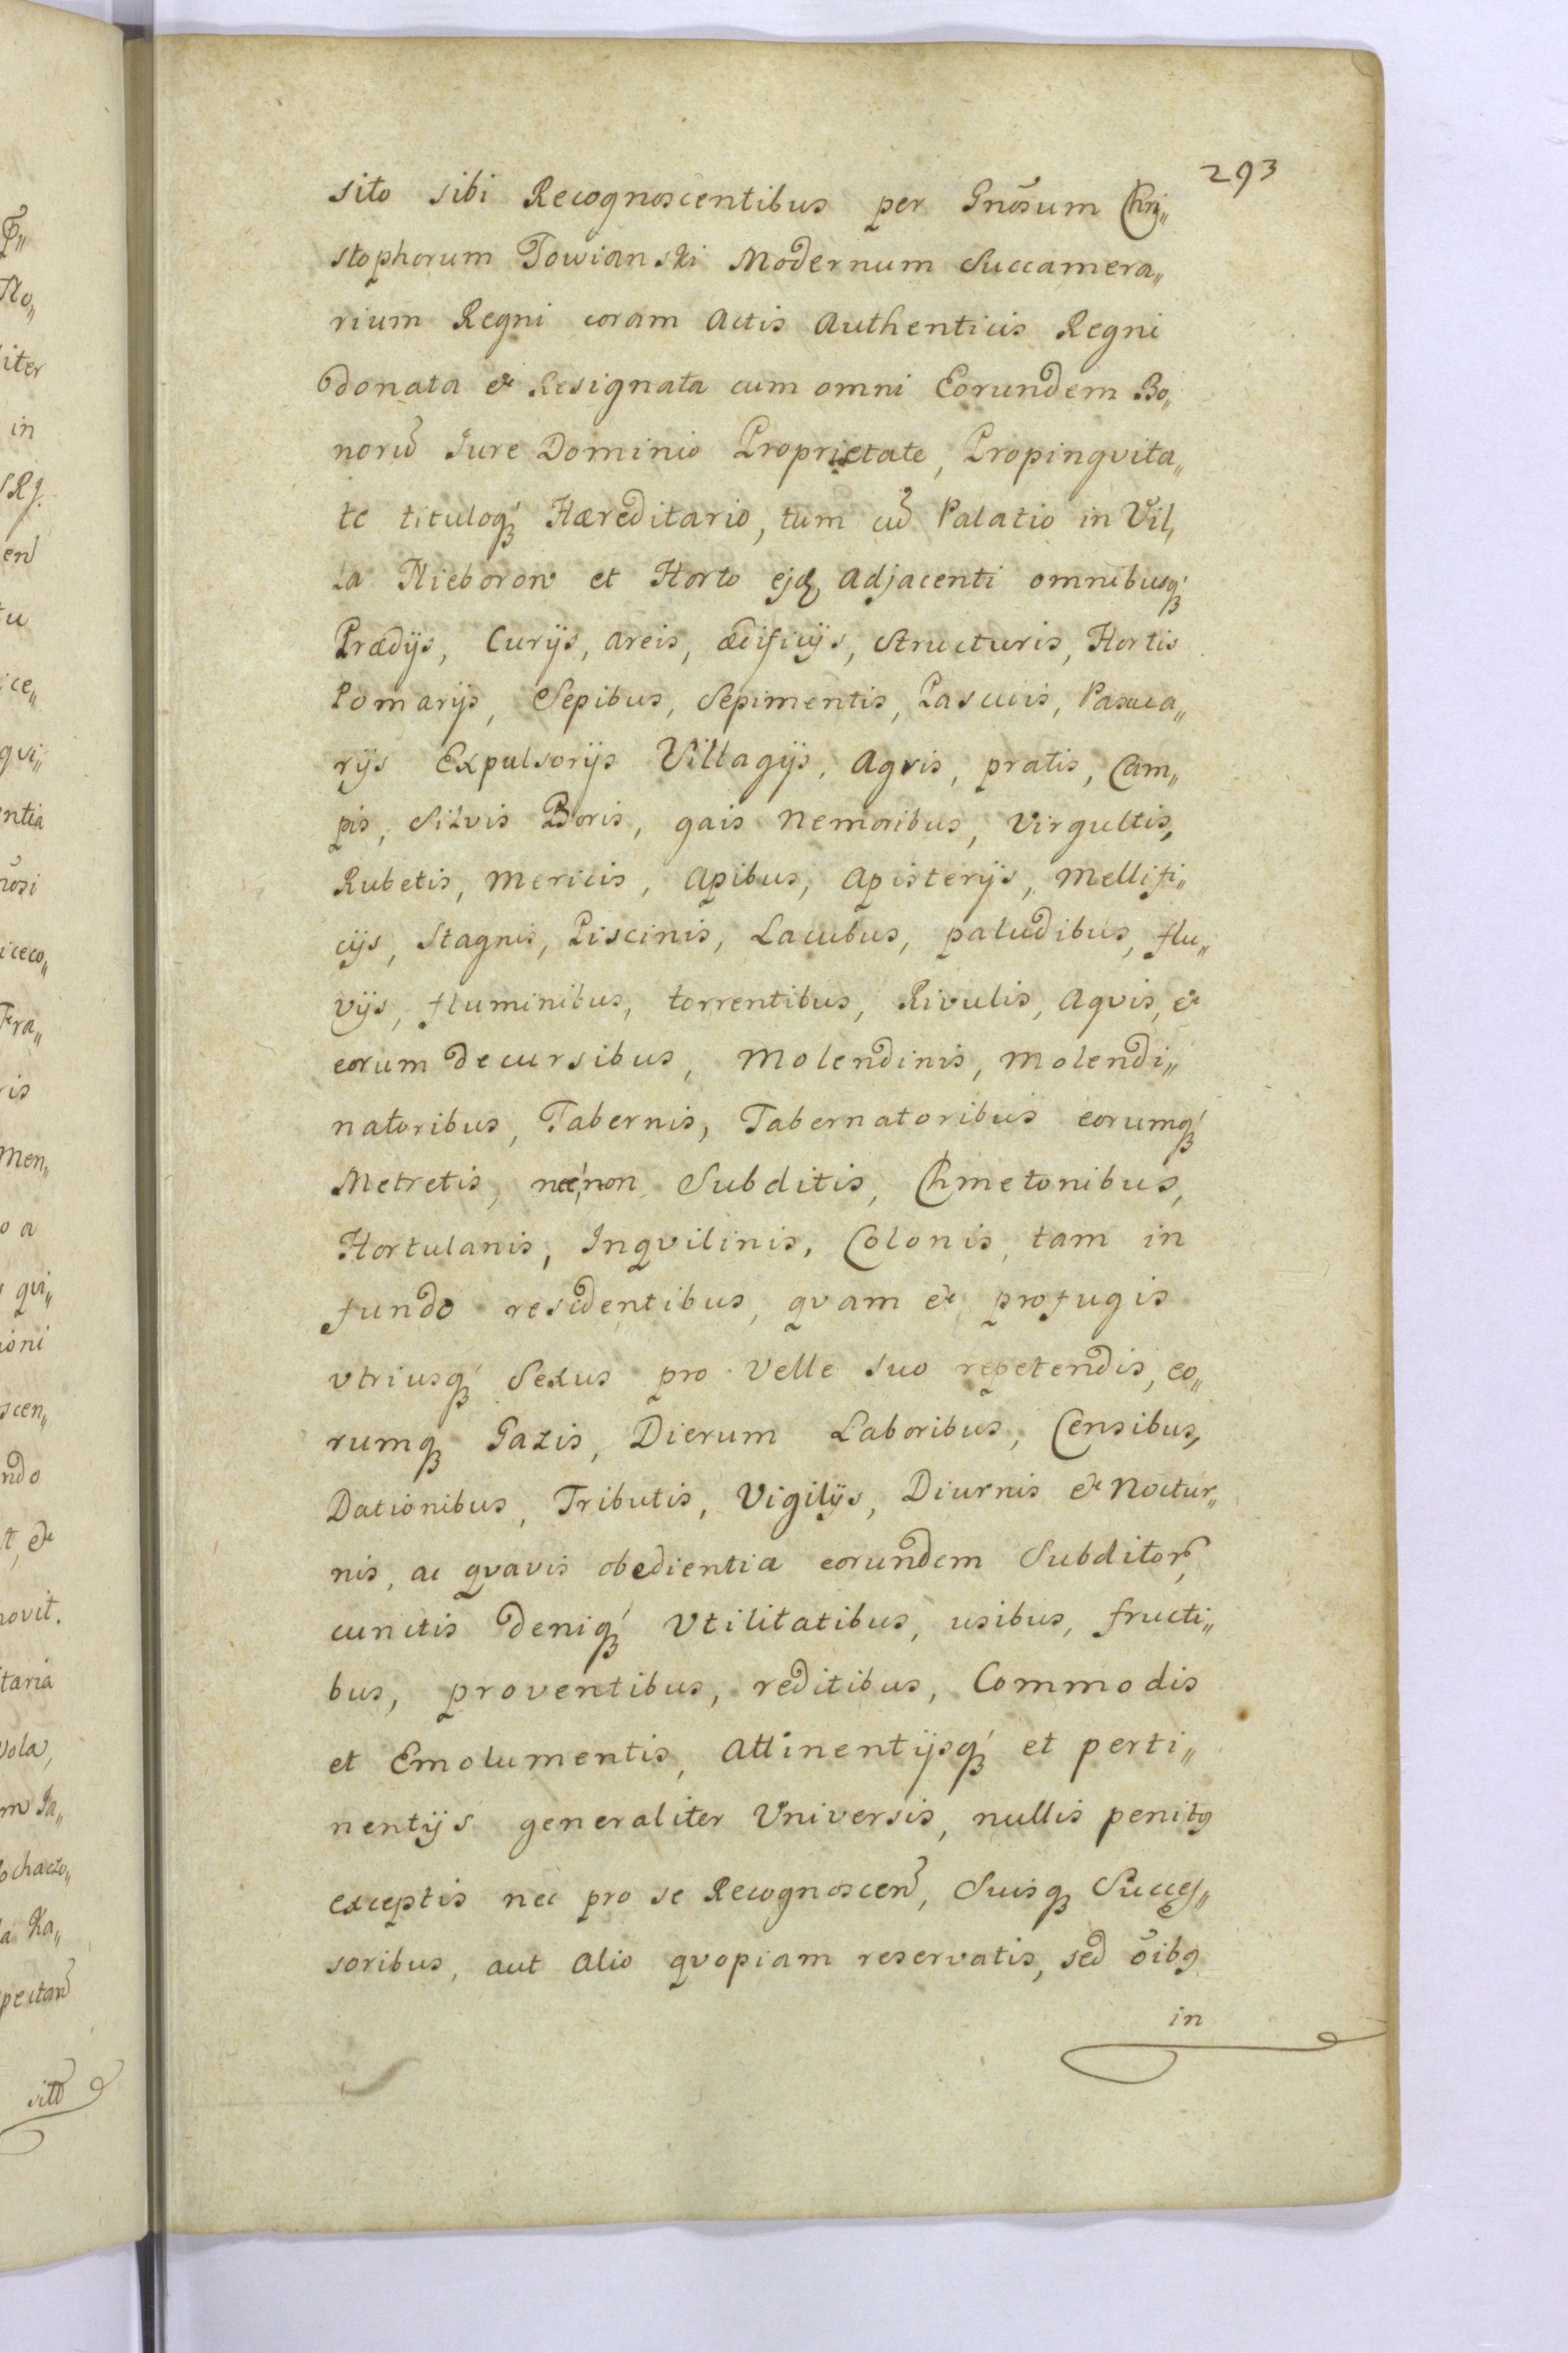 293
sito sibi Recognoscentibus per Gnõsum Chri„
stophorum Towianski Modernum Succamera„
rium Regni coram Actis Authenticis Regni
donata & Resignata cum omni Eorundem Bo„
norũ Iure Dominio Proprietate, Propinqvita„
te tituloq́ꝫ Hæreditario, tum cũ Palatio in Vil„
la Nieborow et Horto ejꝗ adjacenti omnibusq́ꝫ
Prædijs, Curijs, areis, ædificijs, Structuris, Hortis
Pomarijs, Sepibus, Sepimentis, Pascuis, Pascua„
rijs Expulsorijs Villagijs, Agris, pratis, Cam„
pis, Silvis Boris, gais Nemoribus, Virgultis,
Rubetis, Mericis, Apibus, Apisterijs, Mellifi„
cijs, Stagnis, Piscinis, Lacubus, paludibus, flu„
vijs, fluminibus, torrentibus, Rivulis, Aqvis, &
eorum decursibus, Molendinis, Molendi„
natoribus, Tabernis, Tabernatoribus eorumq́ꝫ
Metretis, nec non Subditis, Chmetonibus,
Hortulanis, Inqvilinis, Colonis, tam in
fundo residentibus, qvam & profugis
vtriusq́ꝫ Sexus pro Velle suo repetendis, eo„
rumqꝫ Gazis, Dierum Laboribus, Censibus,
Dationibus, Tributis, Vigilijs, Diurnis & Noctur„
nis, ac qvavis obedientia eorundem Subditorũ,
cunctis deniq́ꝫ Vtilitatibus, usibus, fructi„
bus, proventibus, reditibus, Commodis
et Emolumentis, Attinentijsq́ꝫ et perti„
nentijs generaliter Universis, nullis penitꝰ
exceptis nec pro se Recognoscen̄, Suisqꝫ Succes„
soribus, aut alio qvopiam reservatis, sed õibꝰ
in